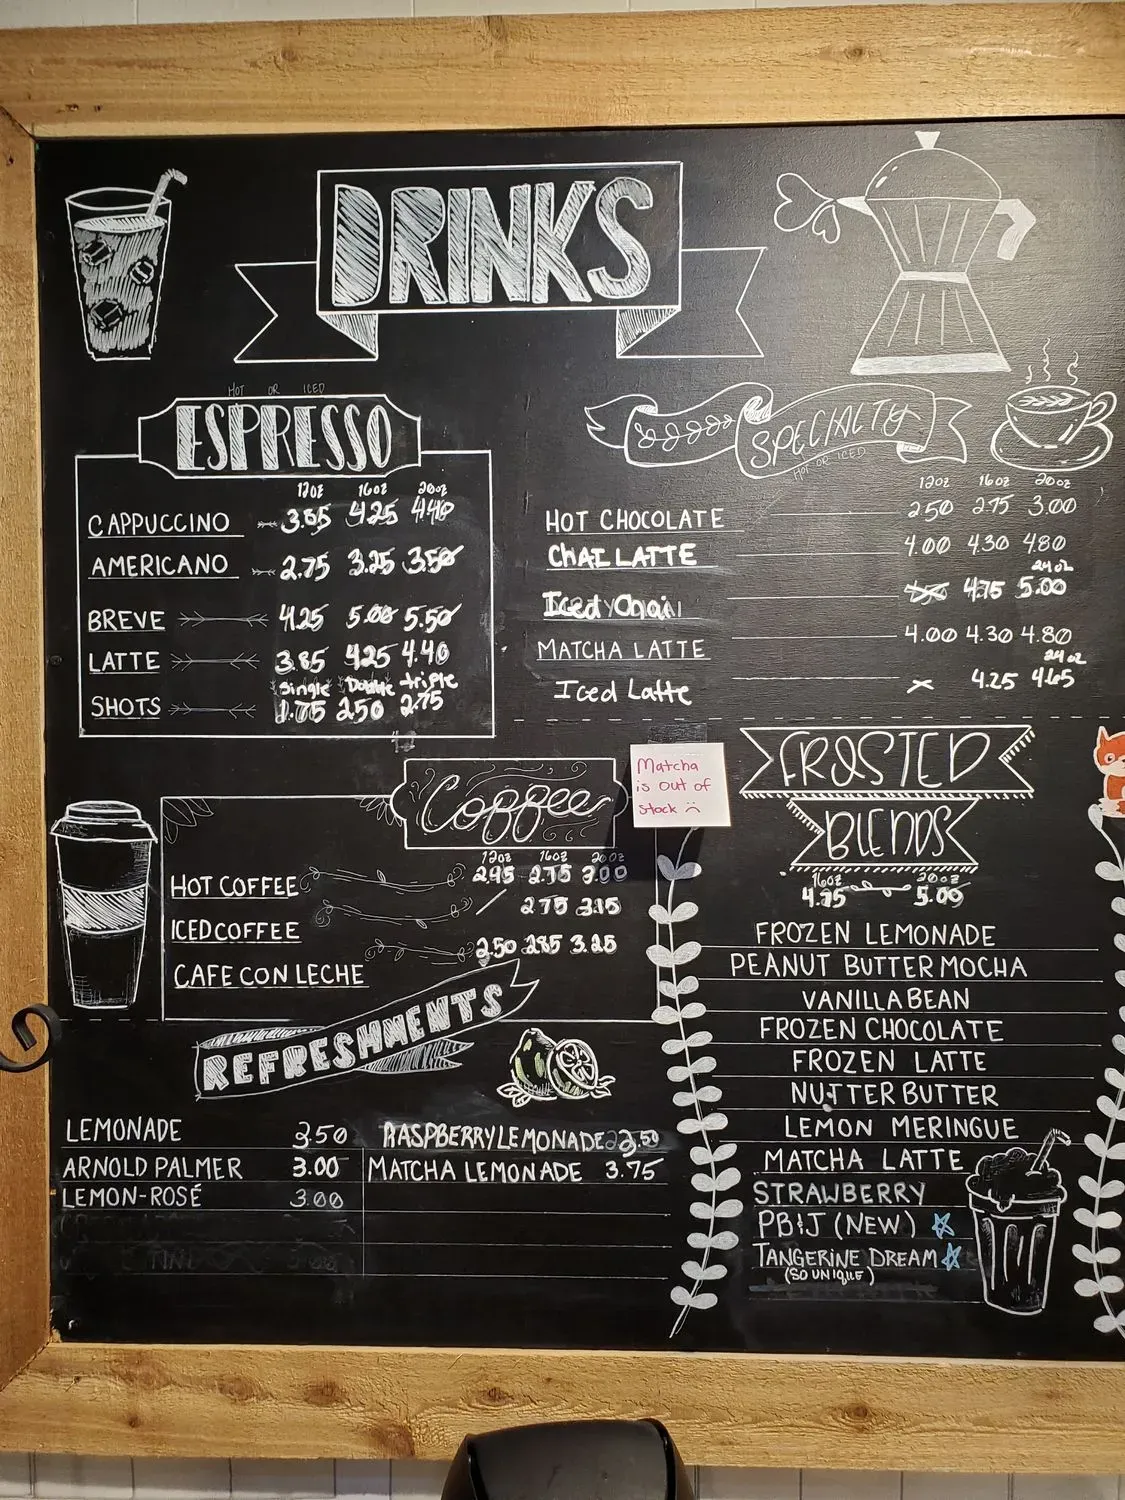 DRINKS
HOT OR ICED
ESPRESSO
12oz 16oz 20oz
CAPPUCCINO 3.85 4.25 4.40
AMERICANO 2.75 3.25 3.50
BREVE 4.25 5.00 5.50
LATTE 3.85 4.25 4.40
Single Double triple
SHOTS 1.75 2.50 2.75
SPECIALTY
HOT OR ICED
12oz 16oz 20oz
HOT CHOCOLATE 2.50 2.75 3.00
CHAI LATTE 4.00 4.30 4.80
24oz
Iced Chai 4.75 5.00
MATCHA LATTE 4.00 4.30 4.80
24oz
Iced Latte x 4.25 4.65
Coffee
12oz 16oz 20oz
HOT COFFEE 2.75 3.00
ICED COFFEE 2.75 3.15
CAFE CON LECHE 2.50 2.85 3.25
Matcha
is out of
stock
FROSTED
BLENDS
16oz 20oz
4.75 5.00
FROZEN LEMONADE
PEANUT BUTTER MOCHA
VANILLA BEAN
FROZEN CHOCOLATE
FROZEN LATTE
NUTTER BUTTER
LEMON MERINGUE
MATCHA LATTE
STRAWBERRY
PB&J (NEW)
TANGERINE DREAM
(SO UNIQUE)
REFRESHMENTS
LEMONADE 2.50
ARNOLD PALMER 3.00
LEMON-ROSÉ 3.00
RASPBERRY LEMONADE 2.50
MATCHA LEMONADE 3.75